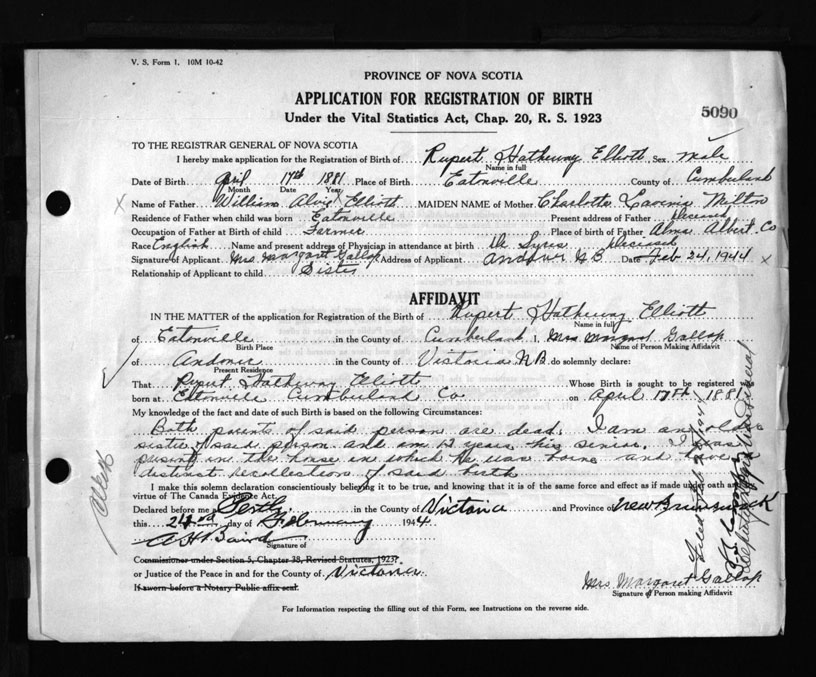 V. S. Form 1. 10M 10-42
PROVINCE OF NOVA SCOTIA
APPLICATION FOR REGISTRATION OF BIRTH
5090
Under the Vital Statistics Act, Chap. 20, R. S. 1923
TO THE REGISTRAR GENERAL OF NOVA SCOTIA
I hereby make application for the Registration of Birth of Rupert Hatheway Elliott Sex male
Name in full
Date of Birth April 17th 1881 Place of Birth Eatonville County of Cumberland
Month Date Year
Name of Father William Elliott MAIDEN NAME of Mother Charlotte
Residence of Father when child was born Eatonville Present address of Father deceased
Occupation of Father at Birth of child Farmer Place of birth of Father Alma Albert Co
Race English Name and present address of Physician in attendance at birth Dr deceased
Signature of Applicant Mrs. Margaret Gallop Address of Applicant Andover N B Date Feb 24, 1944
Relationship of Applicant to child Sister
AFFIDAVIT
IN THE MATTER of the application for Registration of the Birth of Rupert Hatheway Elliott
Name in full
of Eatonville in the County of Cumberland I, Mrs Margaret Gallop
Birth Place Name of Person Making Affidavit
of Andover in the County of Victoria N.B. do solemnly declare:
Present Residence
That Rupert Hatheway Elliott Whose Birth is sought to be registered was
born at Eatonville Cumberland Co on April 17th 1881
My knowledge of the fact and date of such Birth is based on the following Circumstances:
Both parents of said person are dead. I am an older
sister of said person and am 12 years his senior. I was
in the house in which he was born and have
distinct recollections of said birth
I make this solemn declaration conscientiously believing it to be true, and knowing that it is of the same force and effect as if made under oath and
virtue of The Canada Evidence Act.
Declared before me Perth in the County of Victoria and Province of New Brunswick
this day of February 1944
A H Baird
Signature of
Commissioner under Section 5, Chapter 38, Revised Statutes, 1923.
or Justice of the Peace in and for the County of Victoria
If sworn before a Notary Public affix seal.
Mrs. Margaret Gallop
Signature of Person making Affidavit
For Information respecting the filling out of this Form, see Instructions on the reverse side.